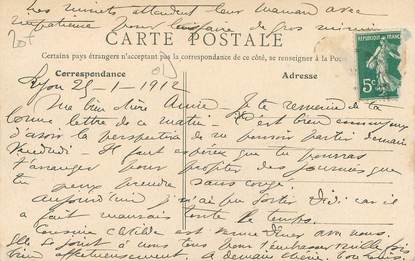 Les minets attendent leur maman avec
impatience pour lui faire de gros mimis
20f
CARTE POSTALE
Certains pays étrangers n'acceptant pas la correspondance de ce côté, se renseigner à la Poste
Correspondance
Adresse
5c
Lyon 25-1-1912
Ma bien chère Aimée - Je te remercie de ta
bonne lettre de ce matin - C'est bien ennuyeux
d'avoir la perspective de ne pouvoir partir demain
Vendredi Il faut espérer que tu pourras
t'arranger pour profiter des journées que
tu peux prendre sans congé.
aujourdhui je n'ai pu sortir Didi car il
a fait mauvais toute le temps.
Cousine Clotilde est venue dîner avec nous.
Elle se joint à nous tous pour t'embrasser mille fois
bien affectueusement à demain chérie